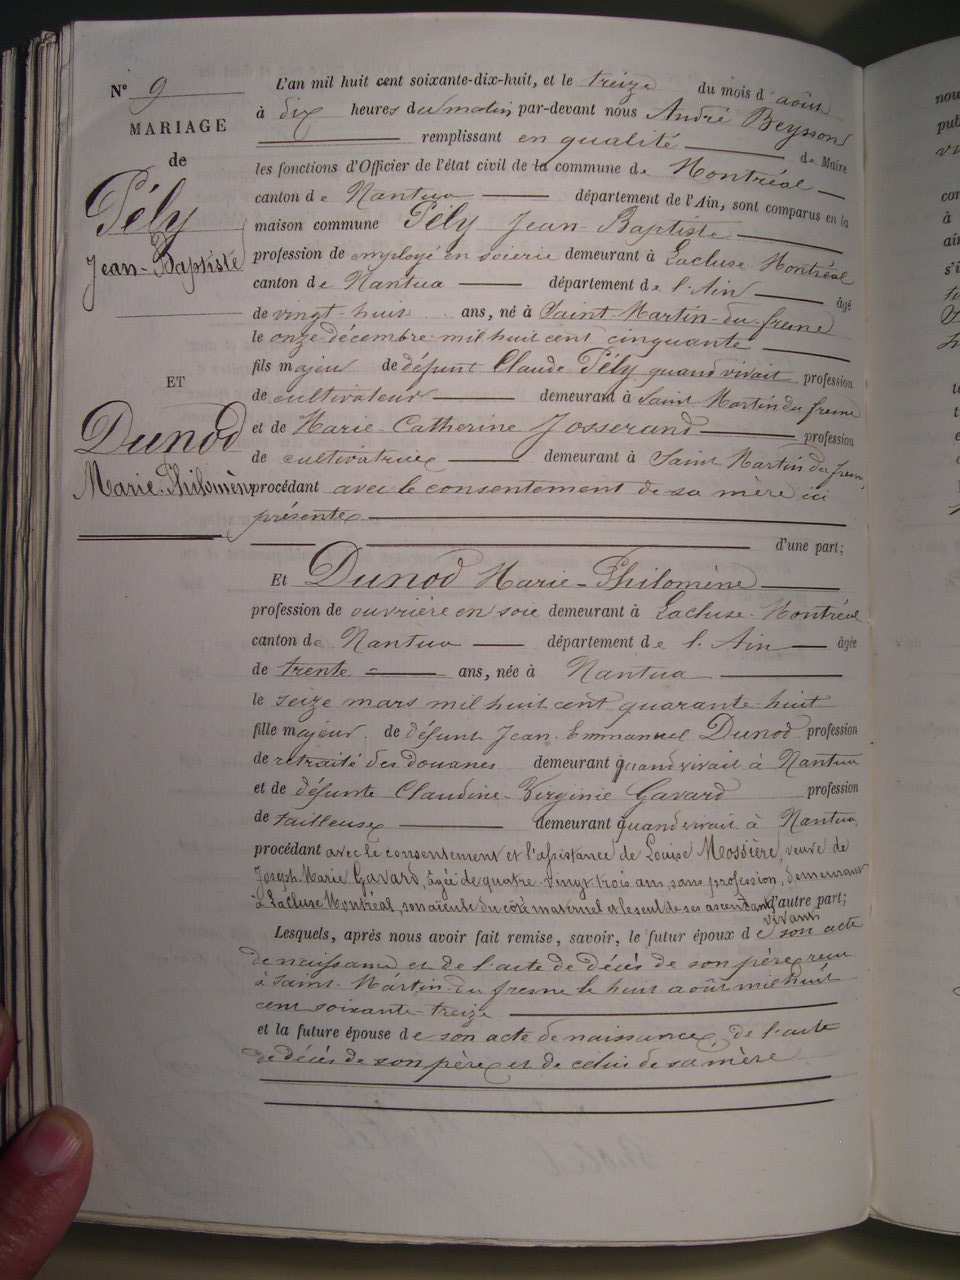 N° 9
MARIAGE
de
Pély
Jean-Baptiste
ET
Dunod
Marie-Philomène
L'an mil huit cent soixante-dix-huit, et le treize du mois d'août
à dix heures du matin par-devant nous André Beysson
remplissant en qualité de Maire
les fonctions d'Officier de l'état civil de la commune de Montréal
canton de Nantua département de l'Ain, sont comparus en la
maison commune Pély Jean-Baptiste
profession de employé en soierie demeurant à Lacluse-Montréal
canton de Nantua département de l'Ain âgé
de vingt-huit ans, né à Saint-Martin-du-fresne
le onze décembre mil huit cent cinquante
fils majeur de défunt Claude Pély quand vivait profession
de cultivateur demeurant à Saint Martin du fresne
et de Marie-Catherine Josserand profession
de cultivatrice demeurant à Saint Martin du fresne,
procédant avec le consentement de sa mère ici
présente
d'une part;
Et Dunod Marie-Philomène
profession de ouvrière en soie demeurant à Lacluse-Montréal
canton de Nantua département de l'Ain âgée
de trente ans, née à Nantua
le seize mars mil huit cent quarante-huit
fille majeur de défunt Jean-Emmanuel Dunod profession
de retraité des douanes demeurant quand vivait à Nantua
et de défunte Claudine-Virginie Gavard profession
de tailleuse demeurant quand vivait à Nantua,
procédant avec le consentement et l'assistance de Louise Mossière, veuve de
Joseph-Marie Gavard, âgée de quatre-vingt-trois ans, sans profession, demeurant
à Lacluse Montréal, son aïeule du côté maternel et le seul de ses ascendants d'autre part;
vivant
Lesquels, après nous avoir fait remise, savoir, le futur époux de son acte
de naissance et de l'acte de décès de son père reçu
à Saint-Martin-du-fresne le huit août mil huit
cent soixante-treize
et la future épouse de son acte de naissance, de l'acte
de décès de son père et de celui de sa mère